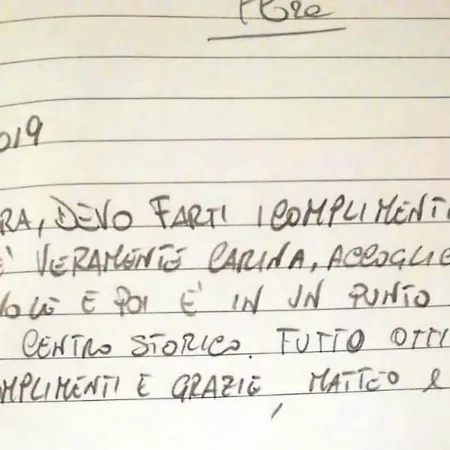 019
RA, DEVO FARTI I COMPLIMENTI
E' VERAMENTE CARINA, ACCOGLIE
VOLE E POI E' IN UN PUNTO
CENTRO STORICO. TUTTO OTTI
MPLIMENTI E GRAZIE, MATTEO e